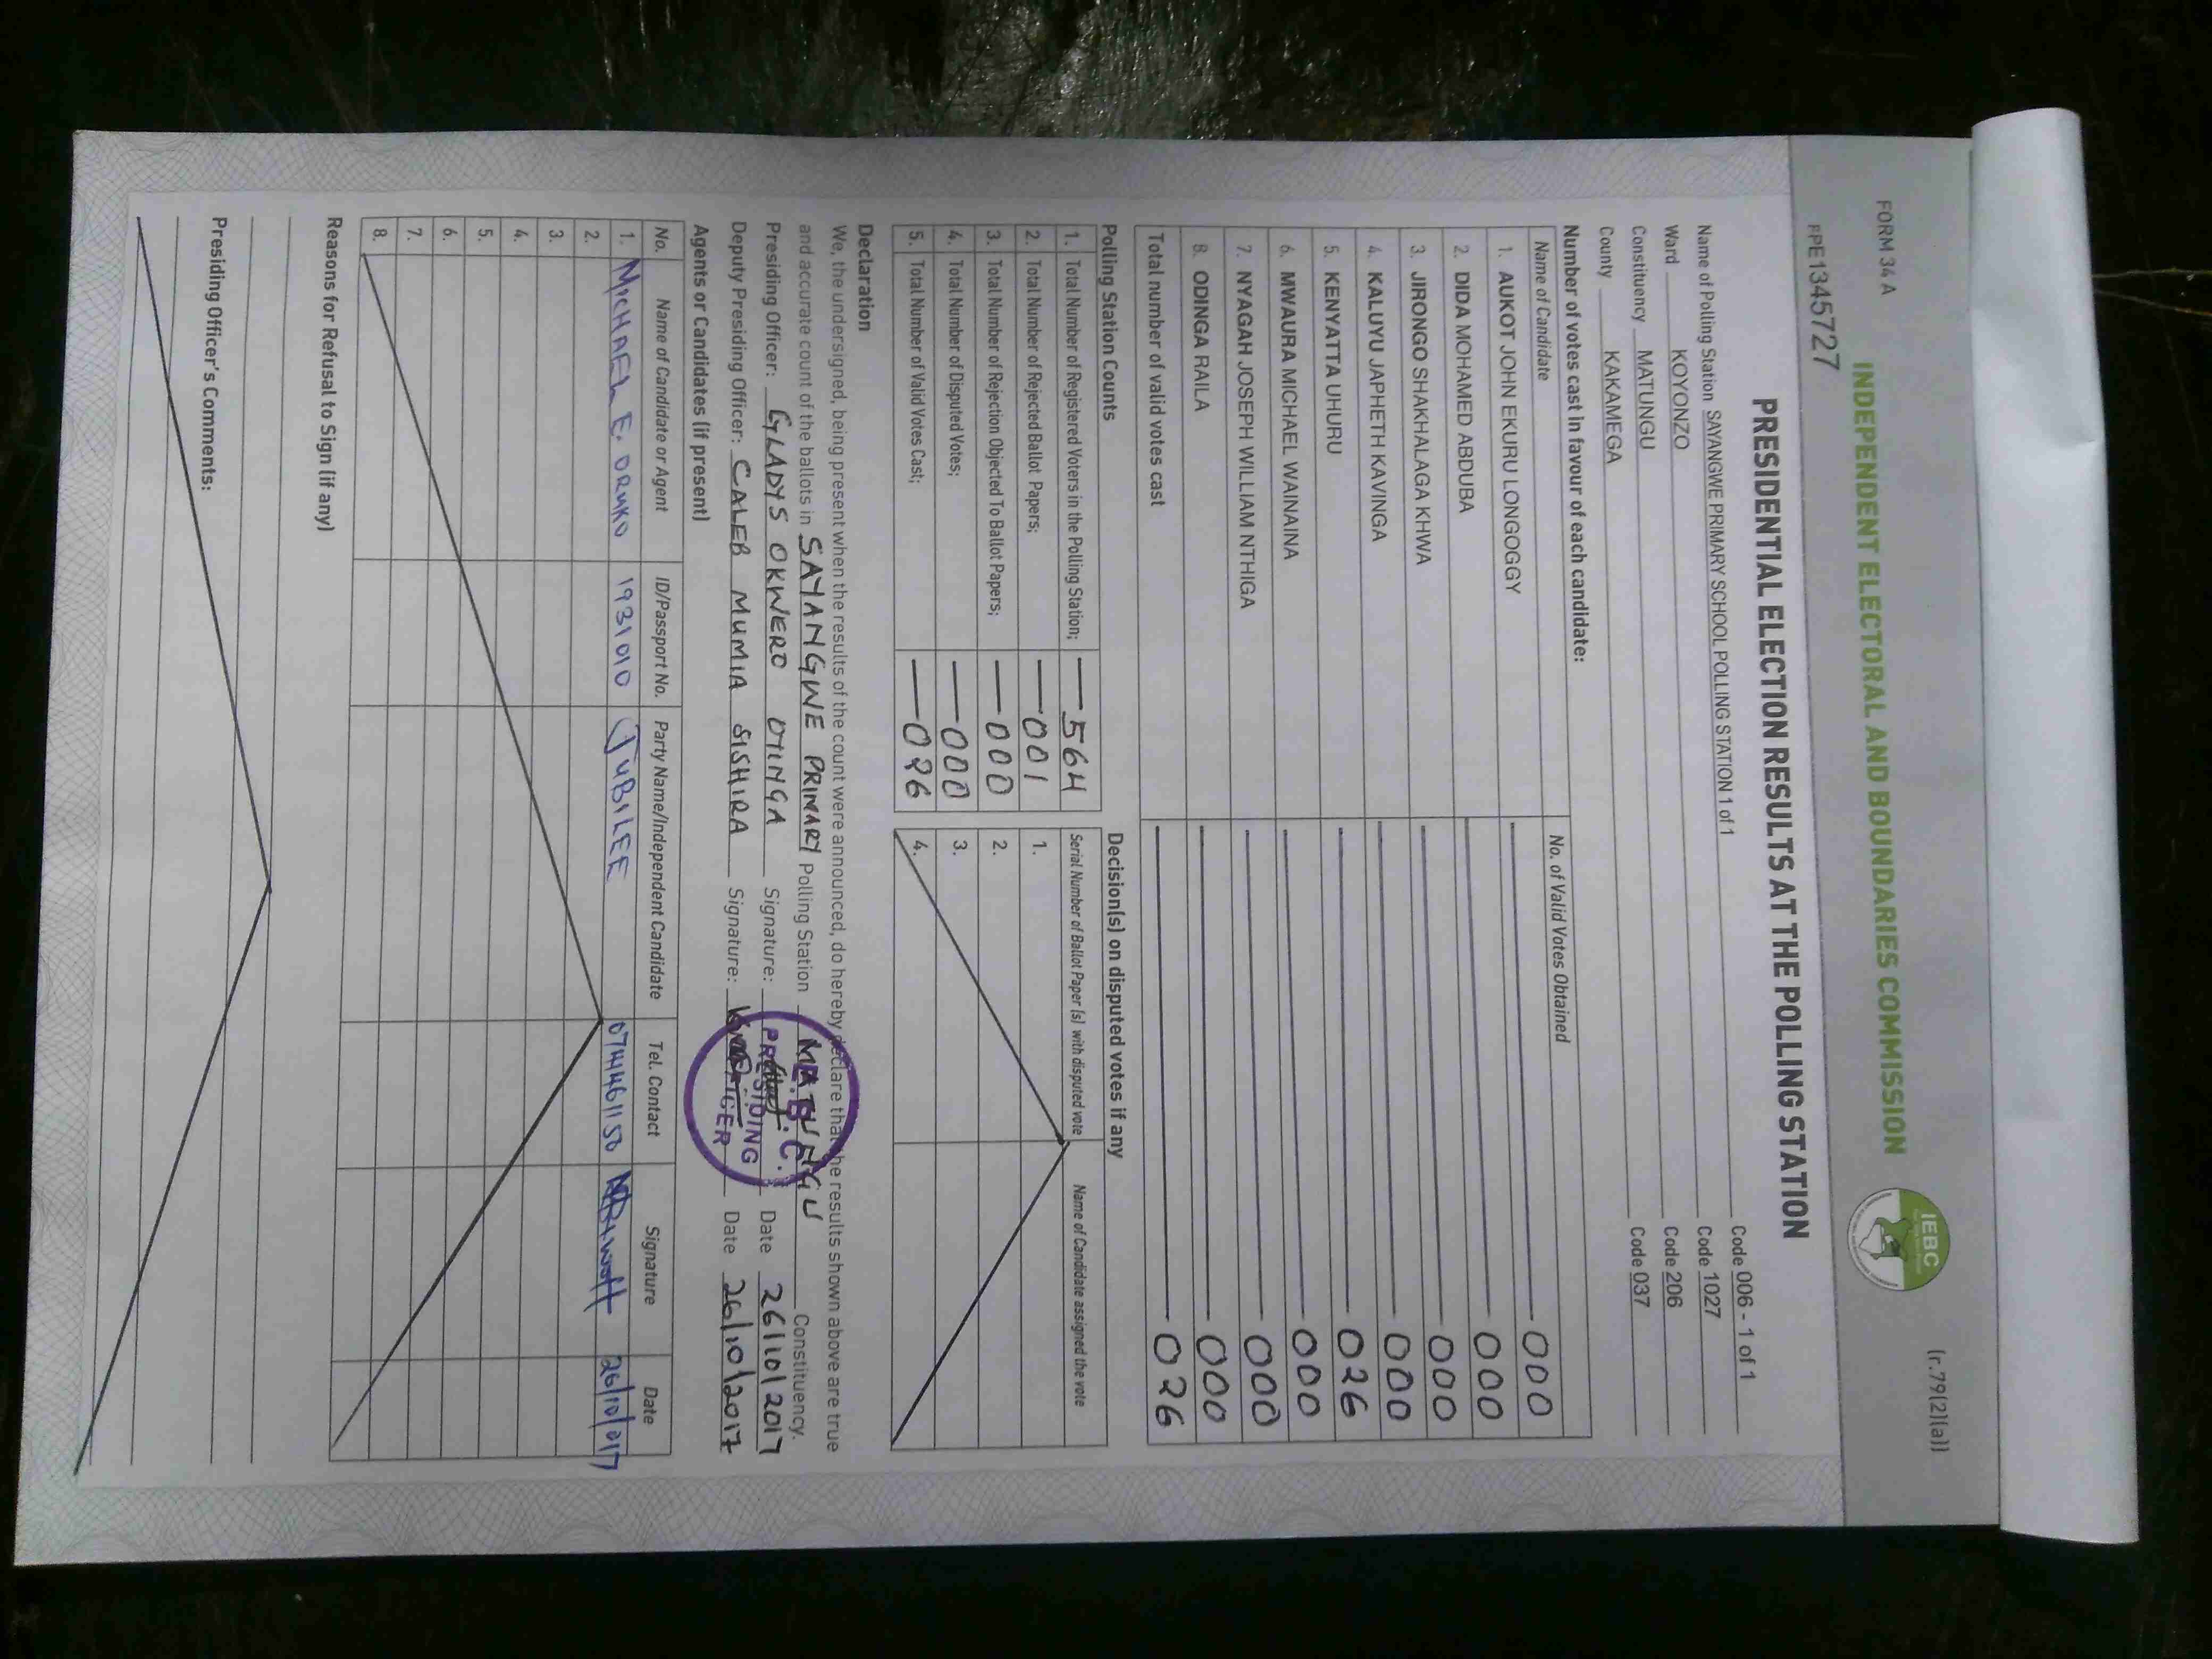 FORM 34 A
(r.79(2)(a))
INDEPENDENT ELECTORAL AND BOUNDARIES COMMISSION
IEBC
PPE1345727
PRESIDENTIAL ELECTION RESULTS AT THE POLLING STATION
Name of Polling Station SAYANGWE PRIMARY SCHOOL POLLING STATION 1 of 1 Code 006 - 1 of 1
Ward KOYONZO Code 1027
Constituency MATUNGU Code 206
County KAKAMEGA Code 037
Number of votes cast in favour of each candidate:
Name of Candidate No. of Valid Votes Obtained
1. AUKOT JOHN EKURU LONGOGGY 000
2. DIDA MOHAMED ABDUBA 000
3. JIRONGO SHAKHALAGA KHWA 000
4. KALUYU JAPHETH KAVINGA 000
5. KENYATTA UHURU 026
6. MWAURA MICHAEL WAINAINA 000
7. NYAGAH JOSEPH WILLIAM NTHIGA 000
8. ODINGA RAILA 000
Total number of valid votes cast 026
Polling Station Counts
1. Total Number of Registered Voters in the Polling Station; 564
2. Total Number of Rejected Ballot Papers; 001
3. Total Number of Rejection Objected To Ballot Papers; 000
4. Total Number of Disputed Votes; 000
5. Total Number of Valid Votes Cast; 026
Decision(s) on disputed votes if any
Serial Number of Ballot Paper (s) with disputed vote Name of Candidate assigned the vote
1.
2.
3.
4.
Declaration
We, the undersigned, being present when the results of the count were announced, do hereby declare that the results shown above are true
and accurate count of the ballots in SAYANGWE PRIMARY Polling Station MATUNGU Constituency.
Presiding Officer: GLADYS OKWERO OTINGA Signature: Date 26/10/2017
Deputy Presiding Officer: CALEB MUMIA SISHIRA Signature: Date 26/10/2017
PRESIDING
Agents or Candidates (if present)
No. Name of Candidate or Agent ID/Passport No. Party Name/Independent Candidate Tel. Contact Signature Date
1. MICHAEL E. ORUKO 1931010 JUBILEE 26/10/017
2.
3.
4.
5.
6.
7.
8.
Reasons for Refusal to Sign (if any)
Presiding Officer's Comments: